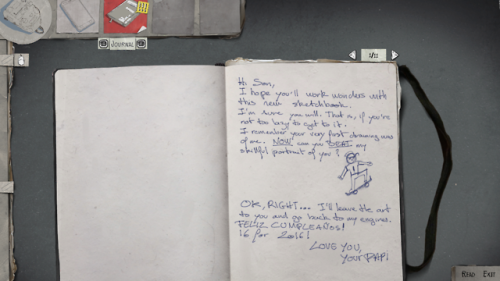 JOURNAL
1/11
Hi Son,
I hope you'll work wonders with
this new sketchbook.
I'm sure you will. That is, if you're
not too lazy to get to it.
I remember your very first drawing was
of me. NOW can you BEAT my
skillful portrait of you?
OK, RIGHT... I'll leave the art
to you and go back to my engines.
FELIZ CUMPLEAÑOS!
16 for 2016!
LOVE YOU,
YOUR PAPI
READ EXIT